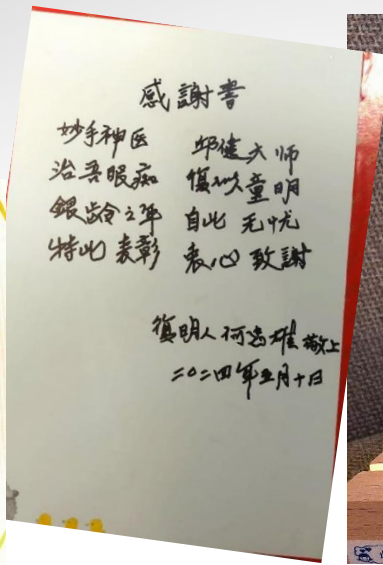 感謝書
妙手神医 邱健大师
治吾眼痴 復以童明
銀龄之年 自此无忧
特此表彰 衷心致謝
復明人何志雄敬上
二〇二四年五月十日